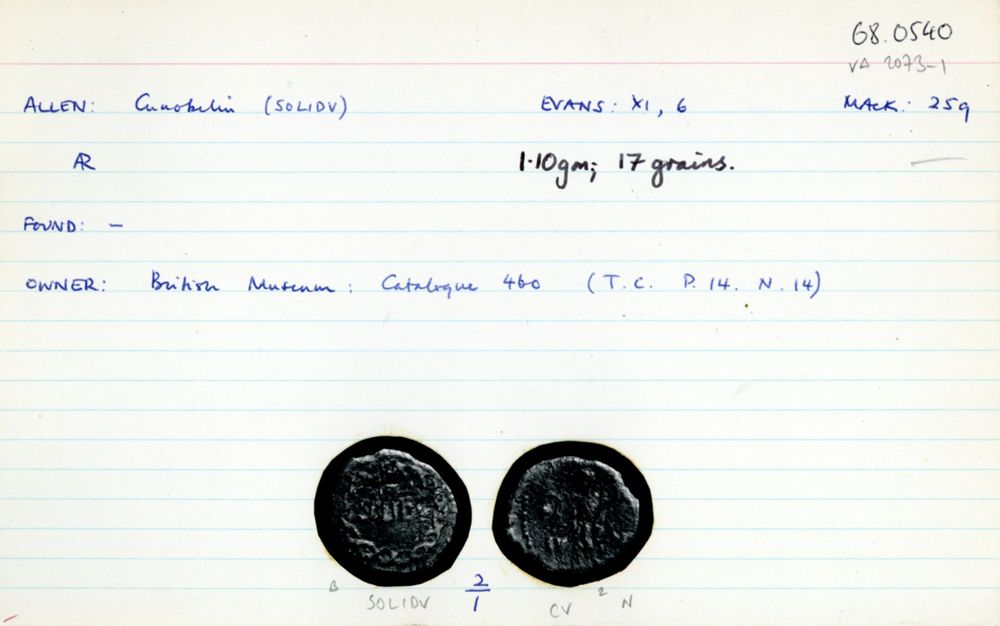 68.0540
VA 2073-1
ALLEN: Cunobelin (SOLIDV) EVANS: XI, 6 MACK: 259
AR —
1.10gm; 17 grains.
FOUND: –
OWNER: British Museum: Catalogue 460 (T.C. P.14. N.14)
SOLIDV 2/1 CV N